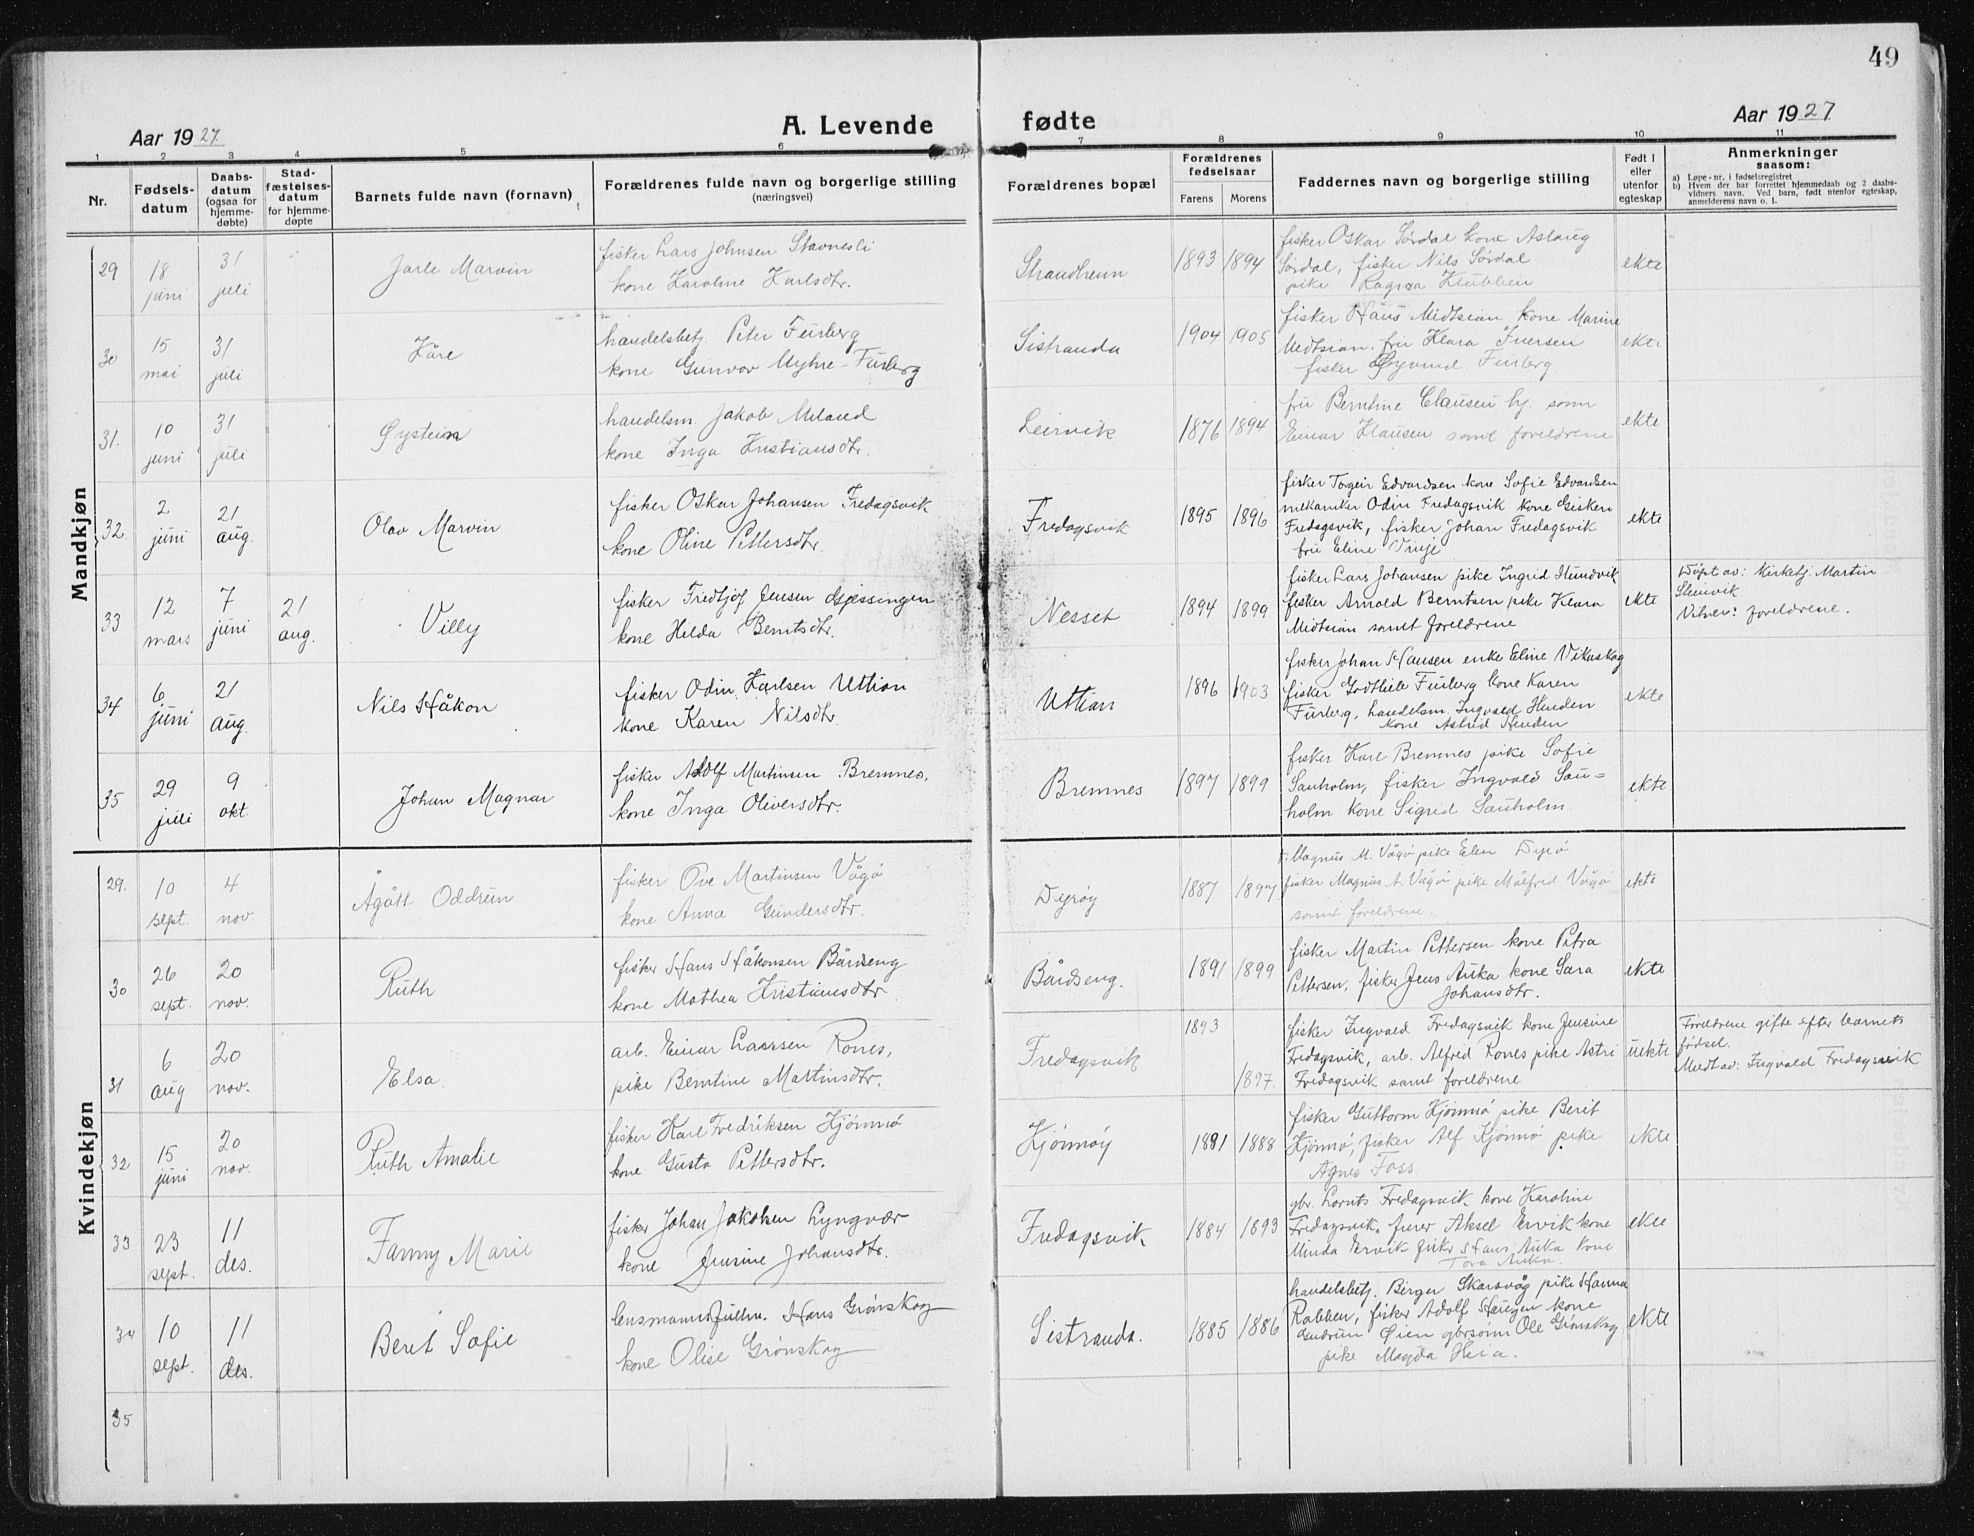 49
Aar 1927
A. Levende fødte
Aar 1927
1 2 3 4 5 6 7 8 9 10 11
Nr.
Fødsels-
datum
Daabs-
datum
(ogsaa for
hjemme-
døbte)
Stad-
fæstelses-
datum
for hjemme-
døpte
Barnets fulde navn (fornavn)
Forældrenes fulde navn og borgerlige stilling
(næringsvei)
Forældrenes bopæl
Forældrenes
fødselsaar
Farens Morens
Faddernes navn og borgerlige stilling
Født i
eller
utenfor
egteskap
Anmerkninger
saasom:
a) Løpe-nr. i fødselsregistret
b) Hvem der har forrettet hjemmedaab og 2 daabs-
vidners navn. Ved barn, født utenfor egteskap,
anmelderens navn o. l.
Mandkjøn
29
18
juni
31
juli
Jarle Marvin
fisker Lars Johnsen Stavnesli
kone Karoline Karlsdtr.
Strandheim
1893 1894
fisker Oskar Sørdal kone Aslaug
Sørdal, fisker Nils Sørdal
pike Ragna Klubben
ekte
30
15
mai
31
juli
Kåre
handelsbetj. Peter Furberg
kone Gunvor Myhre-Furberg
Sistranda
1904 1905
fisker Hans Midtsian kone Marine
Midtsian. fru Klara Iversen
fisker Øyvind Furberg
ekte
31.
10
juni
31
juli
Øystein
handelsm. Jakob Meland
kone Inga Kristiansdtr.
Leirvik
1876 1894
fru Berntine Clausen hj. sønn
Einar Klausen samt foreldrene
ekte
32.
2
juni
21
aug.
Olav Marvin
fisker Oskar Johansen Fredagsvik
kone Oline Pettersdtr.
Fredagsvik
1895 1896
fisker Torgeir Edvardsen kone Sofie Edvardsen
mekaniker Odin Fredagsvik kone Gisken
Fredagsvik, fisker Johan Fredagsvik
fru Eline Vinje
ekte
33
12
mars
7
juni
21
aug.
Villy
fisker Fredtjof Jensen Gjessingen
kone Hilda Berntsdtr.
Nesset
1894 1899
fisker Lars Johansen pike Ingrid Hundvik
fisker Arnold Berntsen pike Klara
Midtsian samt foreldrene
ekte
Døpt av: Kirketj. Martin
Steinvik
Vitner: foreldrene.
34
6
juni
21
aug.
Nils Håkon
fisker Odin Karlsen Uttian
kone Karen Nilsdtr.
Uttian
1896 1903
fisker Johan Hansen enke Eline Vikaskag
fisker Godtliele Furberg kone Karen
Furberg, handelsm. Ingvald Henden
kone Astrid Henden
ekte
35
29
juli
9
okt.
Johan Magnar
fisker Adolf Martinsen Bremnes,
kone Inga Oliversdtr.
Bremnes
1897 1899
fisker Karl Bremnes pike Sofie
Sauholm, fisker Ingvald Sau=
holm kone Sigrid Sauholm
ekte
Kvindekjøn
29.
10
sept.
4
nov.
Ågått Oddrun
fisker Ove Martinsen Vågø
kone Anna Gundersdtr.
Dyrøy
1887 1897
f. Magnus M. Vågø pike Elen Dyrø
fisker Magnus A. Vågø pike Målfred Vågø
samt foreldrene.
ekte
30
26
sept.
20
nov.
Ruth
fisker Hans Håkonsen Bårdseng
kone Mathea Kristiansdtr.
Bårdseng.
1891 1899
fisker Martin Pettersen kone Petra
Pettersen, fisker Jens Auka kone Sara
Johansdtr.
ekte
31
6
aug
20
nov.
Elsa.
arb. Einar Larssen Rones,
pike Berntine Martinsdtr.
Fredagsvik
1893
1897.
fisker Ingvald Fredagsvik kone Jensine
Fredagsvik, arb. Alfred Rones pike Astri
Fredagsvik samt foreldrene
uekte
Foreldrene gifte efter barnets
fødsel.
Meldt av: Ingvald Fredagsvik
32
15
juni
20
nov.
Ruth Amalie
fisker Karl Fredriksen Kjønnø
kone Gusta Pettersdtr.
Kjønnøy
1891 1888
fisker Guttorm Kjønnø pike Berit
Kjønnø, fisker Alf Kjønnø pike
Agnes Foss
ekte
33
23
sept.
11
des.
Fanny Marie
fisker Johan Jakobsen Lyngvær
kone Jensine Johansdtr.
Fredagsvik
1884 1893
gbr. Lornts Fredagsvik kone Karoline
Fredagsvik, furer Aksel Ervik kone
Minda Ervik fisker Hans Auka kone
Tora Auka.
ekte
34
10
sept.
11
des.
Berit Sofie
lensmannsfullm. Hans Grønskag
kone Olise Grønskag
Sistranda.
1885 1886
handelsbetj. Birger Skarsvåg pike Hanna
Rabben, fisker Adolf Haugen kone
Gudrun Øien gbrsønn Ole Grønskag
pike Magda Heia.
ekte
35